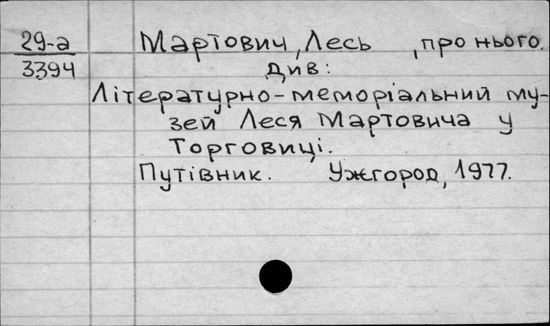 29-а Мартович, Лесь , про нього.
3394 див:
Літературно-меморіальний му-
зей Леся Мартовича у
Торговиці.
Путівник. Ужгород, 1977.